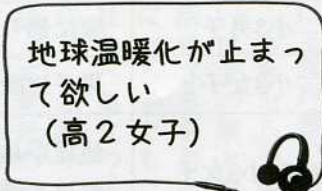 地球温暖化が止まっ
て欲しい
（高２女子）